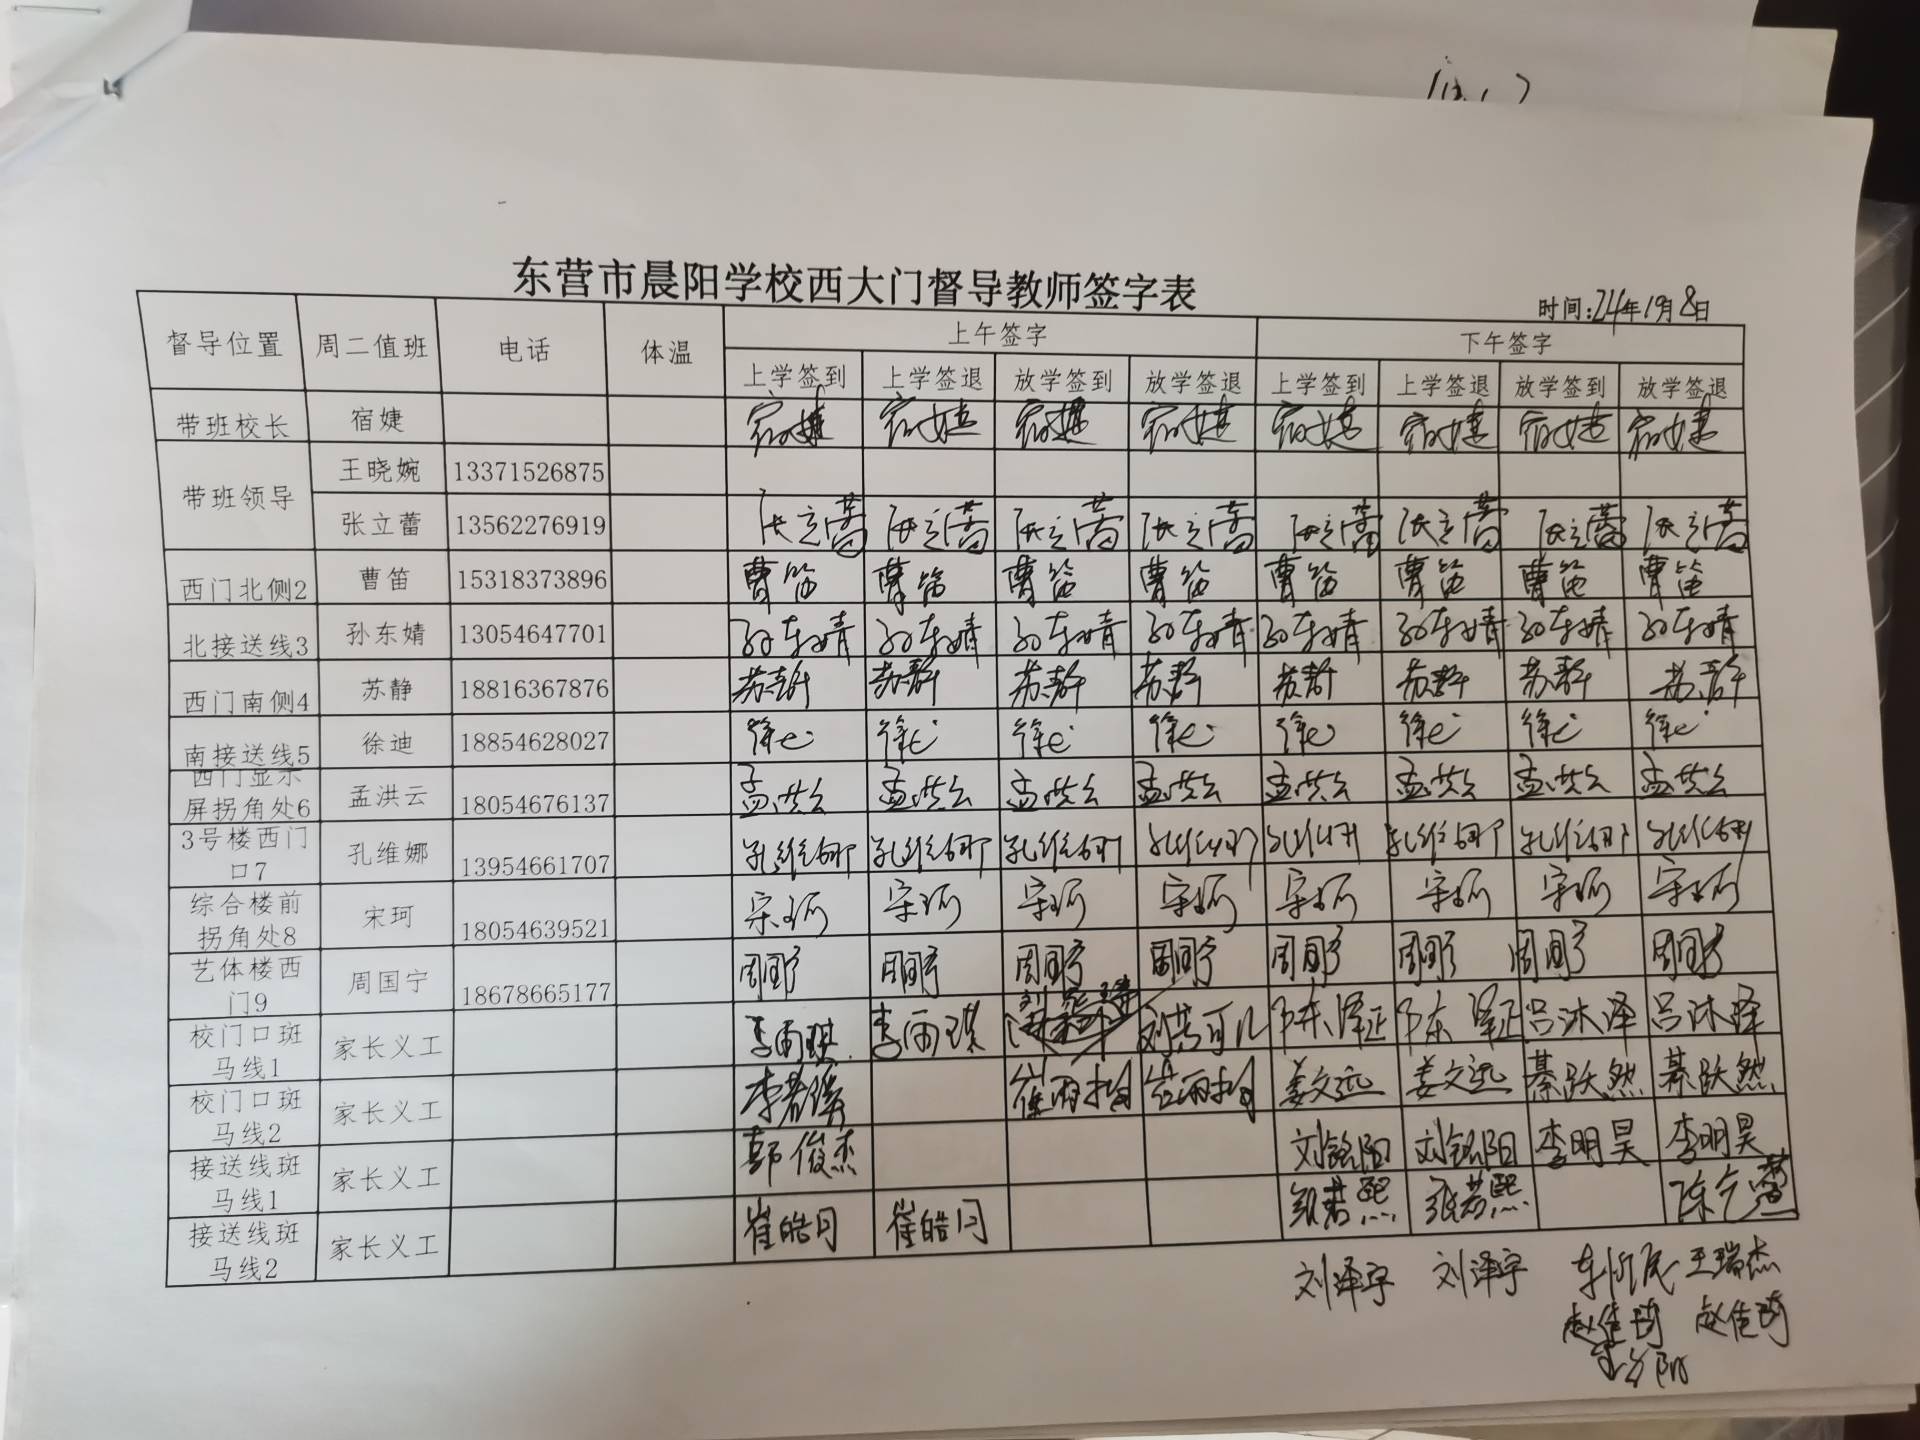 东营市晨阳学校西大门督导教师签字表
时间:24年1月8日
督导位置 周二值班 电话 体温 上午签字 下午签字
上学签到 上学签退 放学签到 放学签退 上学签到 上学签退 放学签到 放学签退
带班校长 宿婕 宿婕 宿婕 宿婕 宿婕 宿婕 宿婕 宿婕 宿婕
带班领导 王晓婉 13371526875
张立蕾 13562276919 张立蕾 张立蕾 张立蕾 张立蕾 张立蕾 张立蕾 张立蕾 张立蕾
西门北侧2 曹笛 15318373896 曹笛 曹笛 曹笛 曹笛 曹笛 曹笛 曹笛 曹笛
北接送线3 孙东婧 13054647701 孙东婧 孙东婧 孙东婧 孙东婧 孙东婧 孙东婧 孙东婧 孙东婧
西门南侧4 苏静 18816367876 苏静 苏静 苏静 苏静 苏静 苏静 苏静 苏静
南接送线5 徐迪 18854628027 徐迪 徐迪 徐迪 徐迪 徐迪 徐迪 徐迪 徐迪
西门显示
屏拐角处6 孟洪云 18054676137 孟洪云 孟洪云 孟洪云 孟洪云 孟洪云 孟洪云 孟洪云 孟洪云
3号楼西门
口7 孔维娜 13954661707 孔维娜 孔维娜 孔维娜 孔维娜 孔维娜 孔维娜 孔维娜 孔维娜
综合楼前
拐角处8 宋珂 18054639521 宋珂 宋珂 宋珂 宋珂 宋珂 宋珂 宋珂 宋珂
艺体楼西
门9 周国宁 18678665177 周国宁 周国宁 周国宁 周国宁 周国宁 周国宁 周国宁 周国宁
校门口斑
马线1 家长义工 李雨琪 李雨琪 刘芸可儿 吕沐泽 吕沐泽
校门口斑
马线2 家长义工 崔雨 崔雨 姜文远 姜文远 綦跃然 綦跃然
接送线斑
马线1 家长义工 郭俊杰 刘铭阳 刘铭阳 李明昊 李明昊
接送线斑
马线2 家长义工 崔皓月 崔皓月 张若熙 张若熙
刘泽宇 刘泽宇 王瑞杰
赵佳琦 赵佳琦